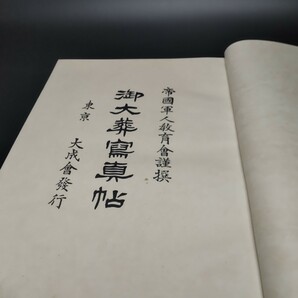 帝國軍人教育會謹撰
御大葬寫真帖
東京
大成會發行